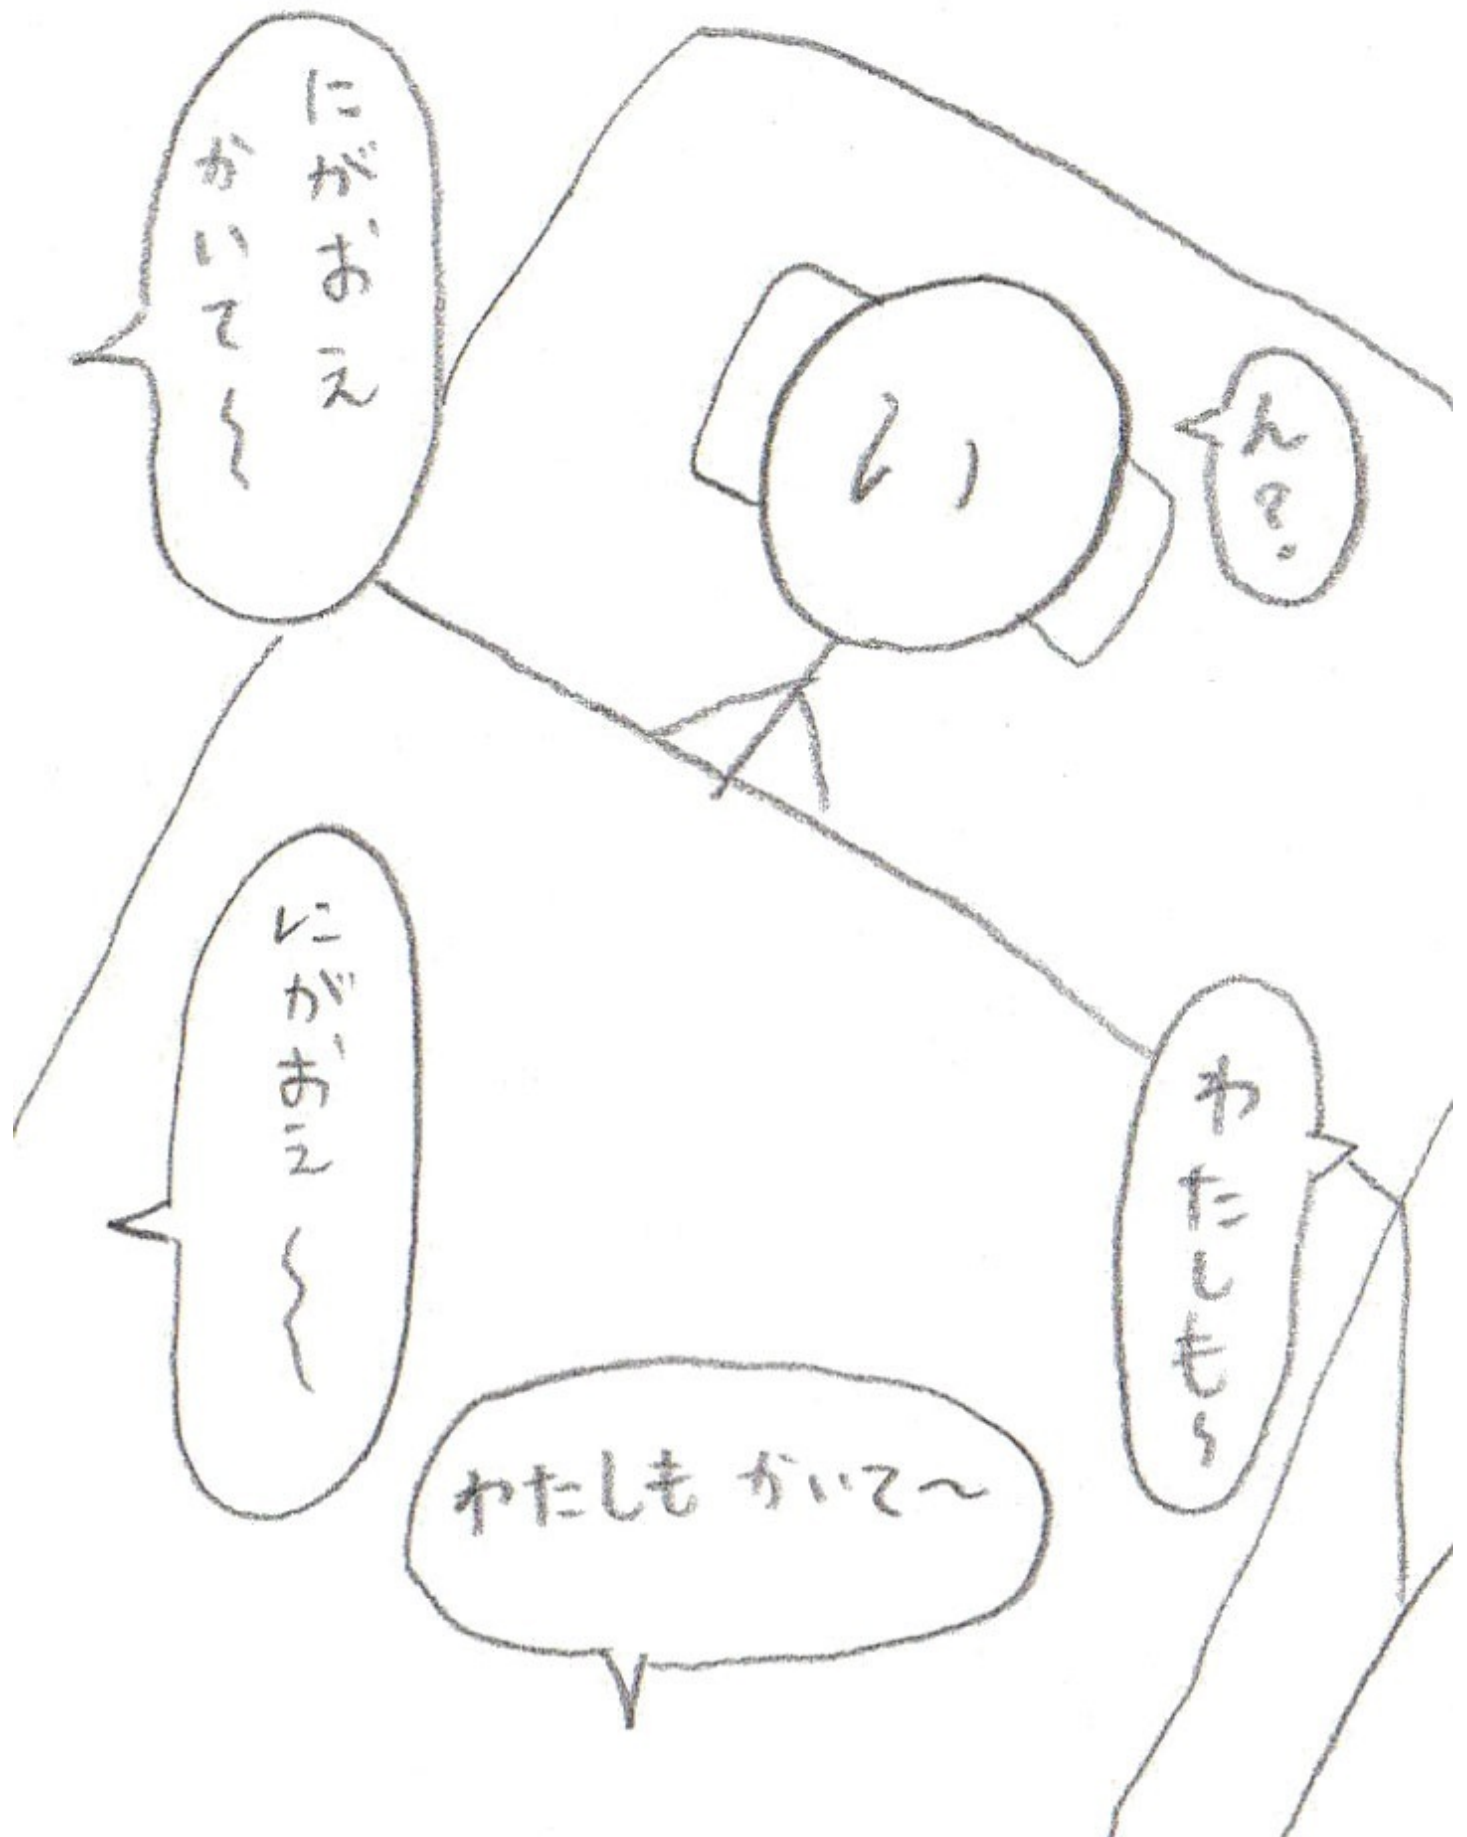 ん?
にがおえ
かいて~
わたしも~
にがおえ~
わたしも かいて~